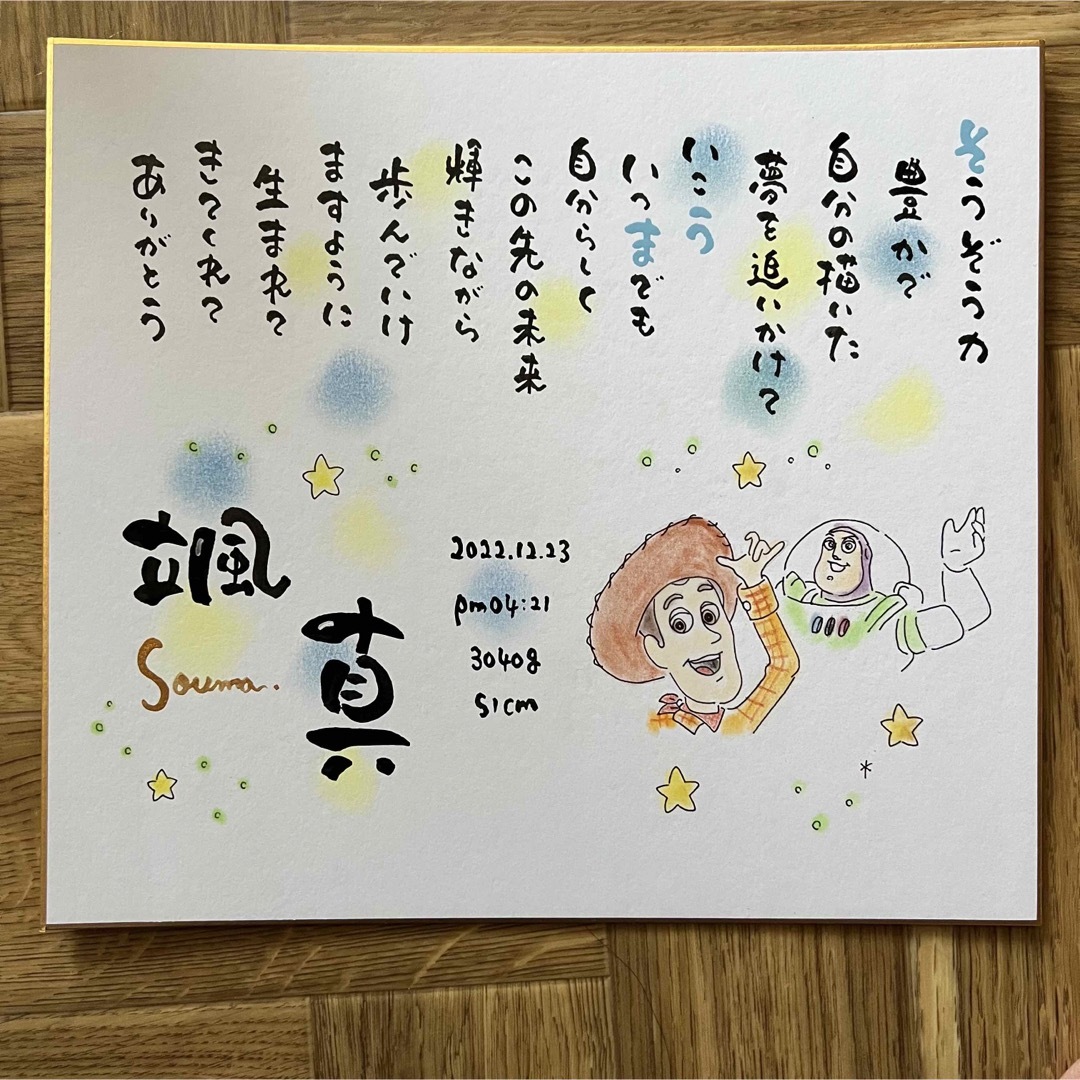 そうぞう力
豊かで
自分の描いた
夢を追いかけて
いこう
いつまでも
自分らしく
この先の未来
輝きながら
歩んでいけ
ますように
生まれて
きてくれて
ありがとう
颯
真
Souma.
2022.12.23
pm04:21
3040g
51cm